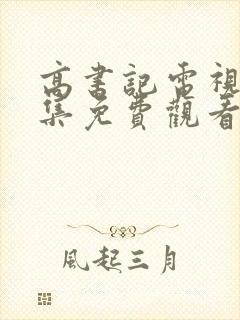 高書記電視
集免費觀看
風起三月